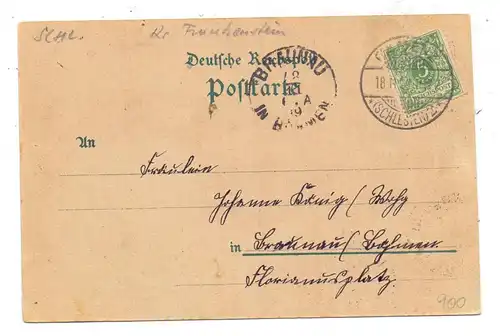 Kr Frankenstein
Deutsche Reichspost
Postkarte
BRAUNAU
IN BÖHMEN
5
18
(SCHLESIEN)
An
Fräulein
Johanna König
in Braunau / Böhmen.
Florianusplatz.
900